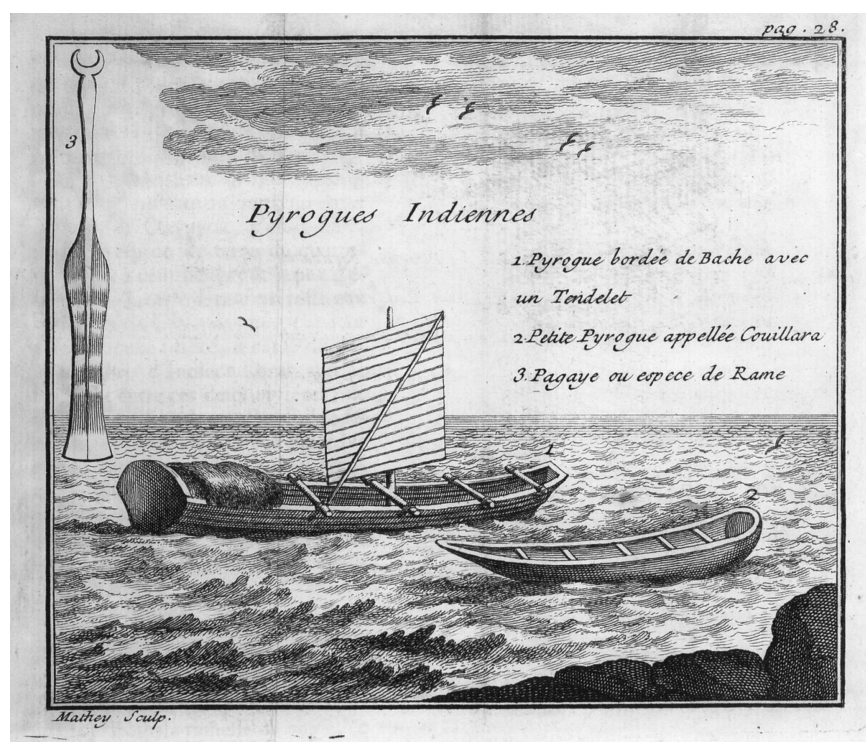 pag. 28.
3
Pyrogues Indiennes
1. Pyrogue bordée de Bache avec
un Tendelet
2. Petite Pyrogue appellée Couillara
3. Pagaye ou espece de Rame
1
2
Mathey Sculp.